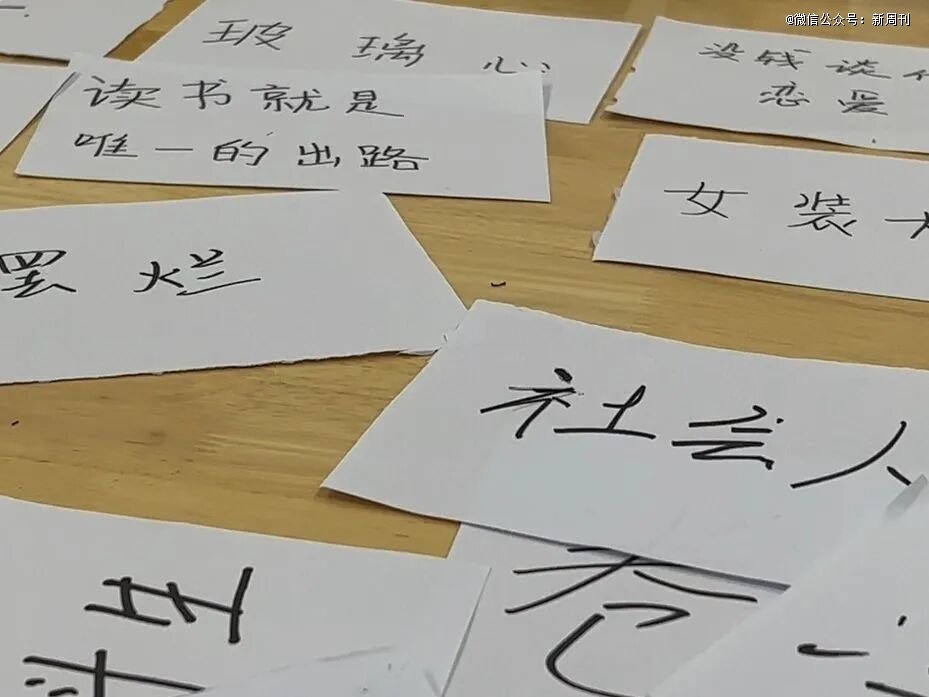 @微信公众号：新周刊
玻璃心
没钱谈
恋爱
读书就是
唯一的出路
女装
罢烂
社会人